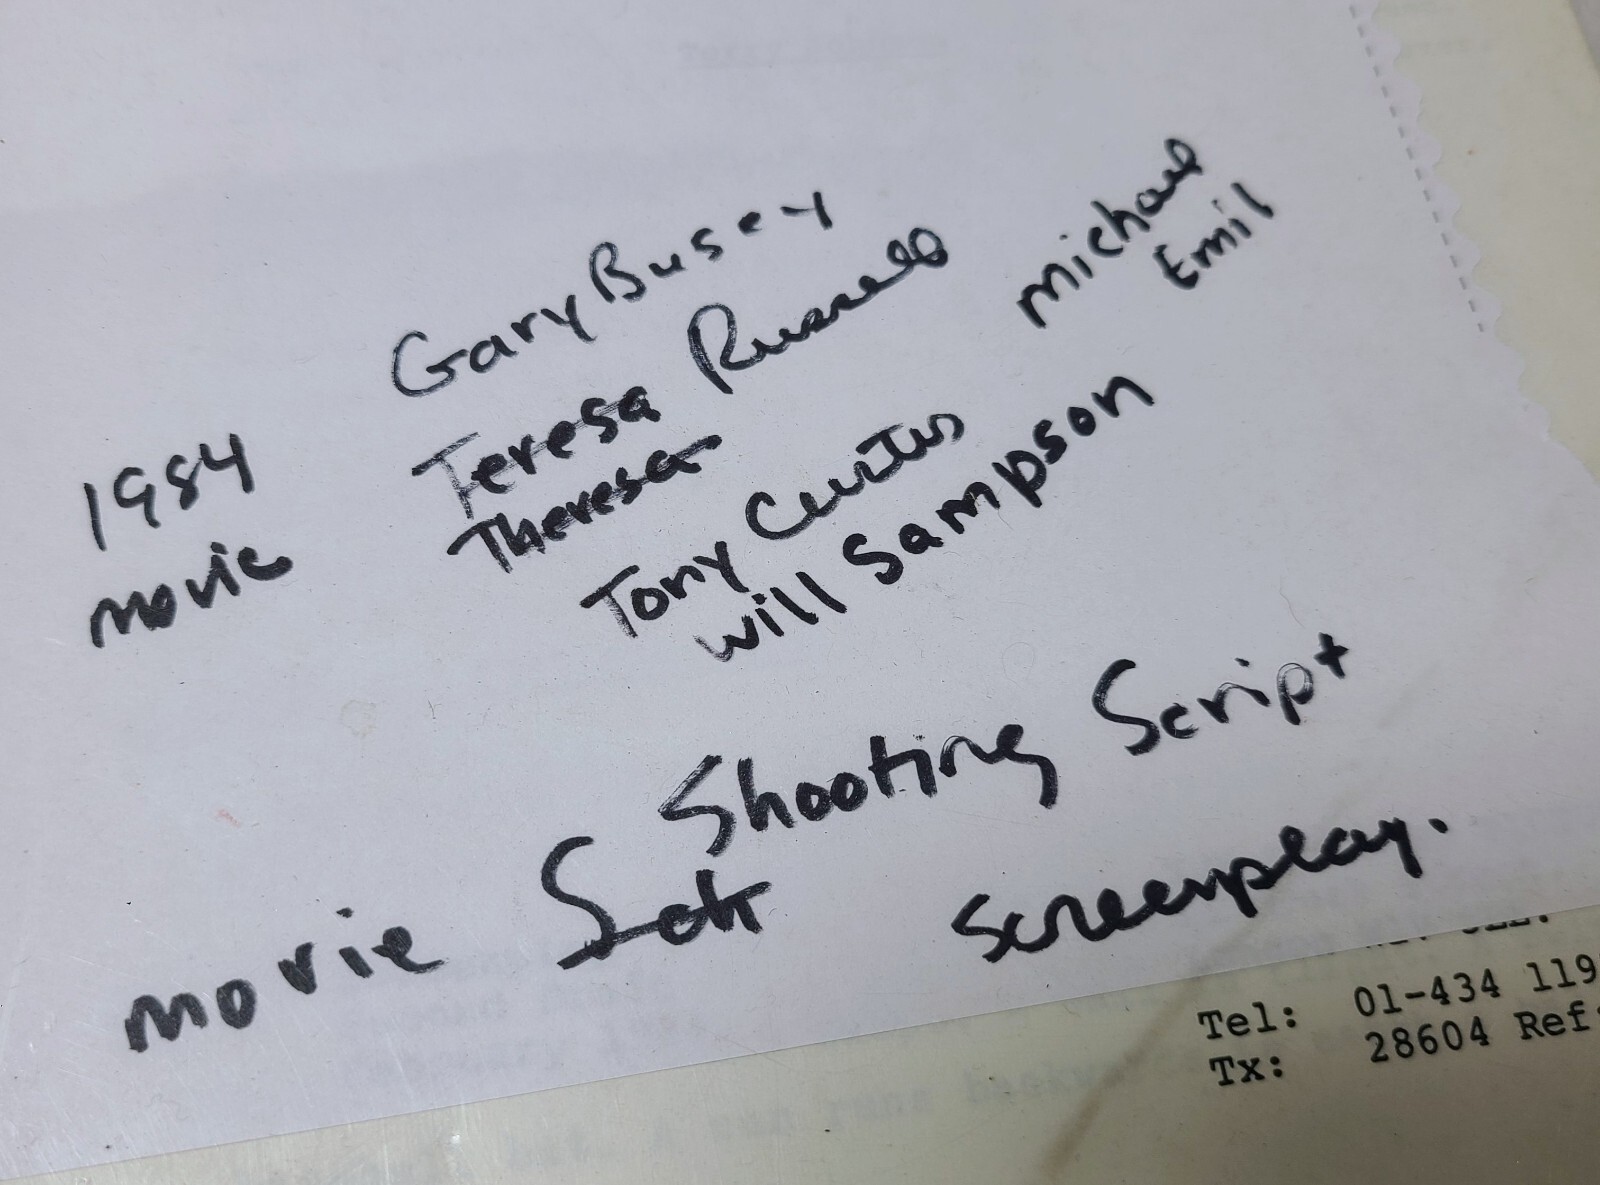 Gary Busey
Teresa Russell
Theresa
Michael
Emil
1984
movie
Tony Curtis
Will Sampson
Shooting Script
movie Set
Screenplay.
Tel: 01-434 119
Tx: 28604 Ref: